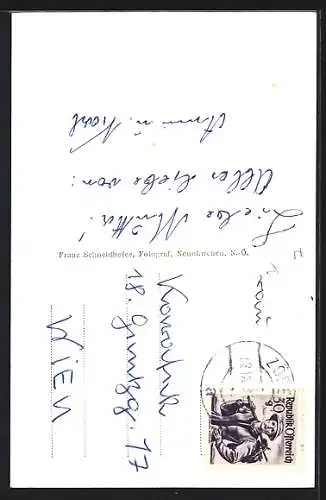 Liebe Mutter!
Alles Liebe von:
Anni u. Karl
Franz Schneidhofer, Fotograf, Neunkirchen, N.-Ö.
Frau
18. Gentzg. 17
WIEN
Republik Österreich
30 g